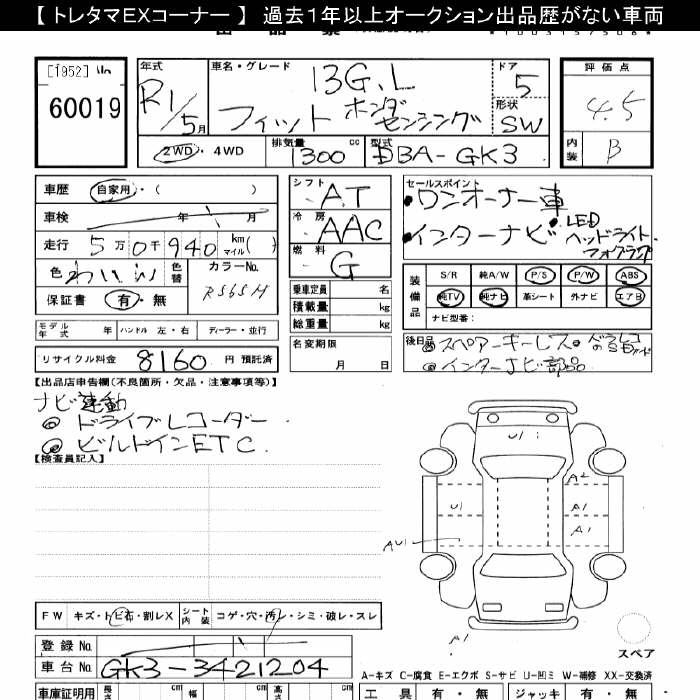 【 トレタマEXコーナー 】 過去1年以上オークション出品歴がない車両
[1952]
60019
年式
R1/5月
車名・グレード
13G.L
フィット ホンダセンシング
ドア
5
形状
SW
評価点
4.5
内装
B
2WD・4WD
排気量 1300 cc
型式 DBA-GK3
車歴 自家用・( )
車検 年 月
走行 5万0千940 km マイル( )
色
色替
カラーNo.
保証書 有・無
シフト AT
冷房 AAC
燃料 G
セールスポイント
・ワンオーナー車
・インターナビ ・LEDヘッドライト・フォグランプ
装備品
S/R 純A/W P/S P/W ABS
純TV 純ナビ 革シート 外ナビ エアB
ナビ型番:
モデル年式 年 ハンドル 左・右 ディーラー・並行
乗車定員 名
積載量 kg
総重量 kg
リサイクル料金 8160 円 預託済
名変期限
月 日
後日品
◎スペアーキーレス
◎インターナビ部品
【出品店申告欄(不良箇所・欠品・注意事項等)】
ナビ連動
◎ ドライブレコーダー
◎ ビルドインETC
【検査員記入】
U1
A2
U1
A1
A1
AU1
A1
FW キズ・トビ石・割レX
シート内装 コゲ・穴・汚レ・シミ・破レ・スレ
スペア
登録No.
車台No. GK3-3421204
A-キズ C-腐食 E-エクボ S-サビ U-凹ミ W-補修 XX-交換済
車庫証明用 長さ cm 幅 cm 高さ cm
工具 有・無 ジャッキ 有・無